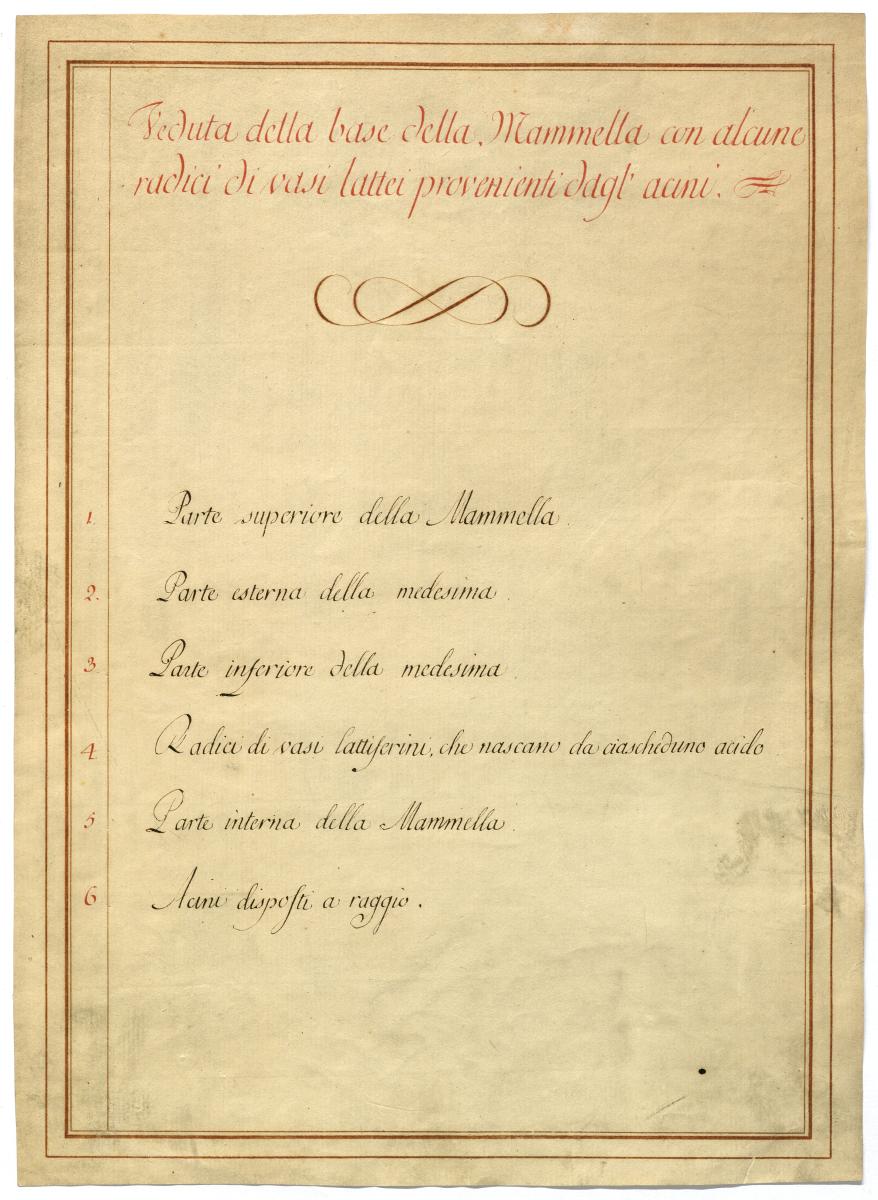 Veduta della base della Mammella con alcune
radici di vasi lattei provenienti dagl' acini.
1. Parte superiore della Mammella.
2. Parte esterna della medesima.
3. Parte inferiore della medesima.
4. Radici di vasi lattiferini, che nascano da ciascheduno acido
5. Parte interna della Mammella.
6 Acini disposti a raggio.